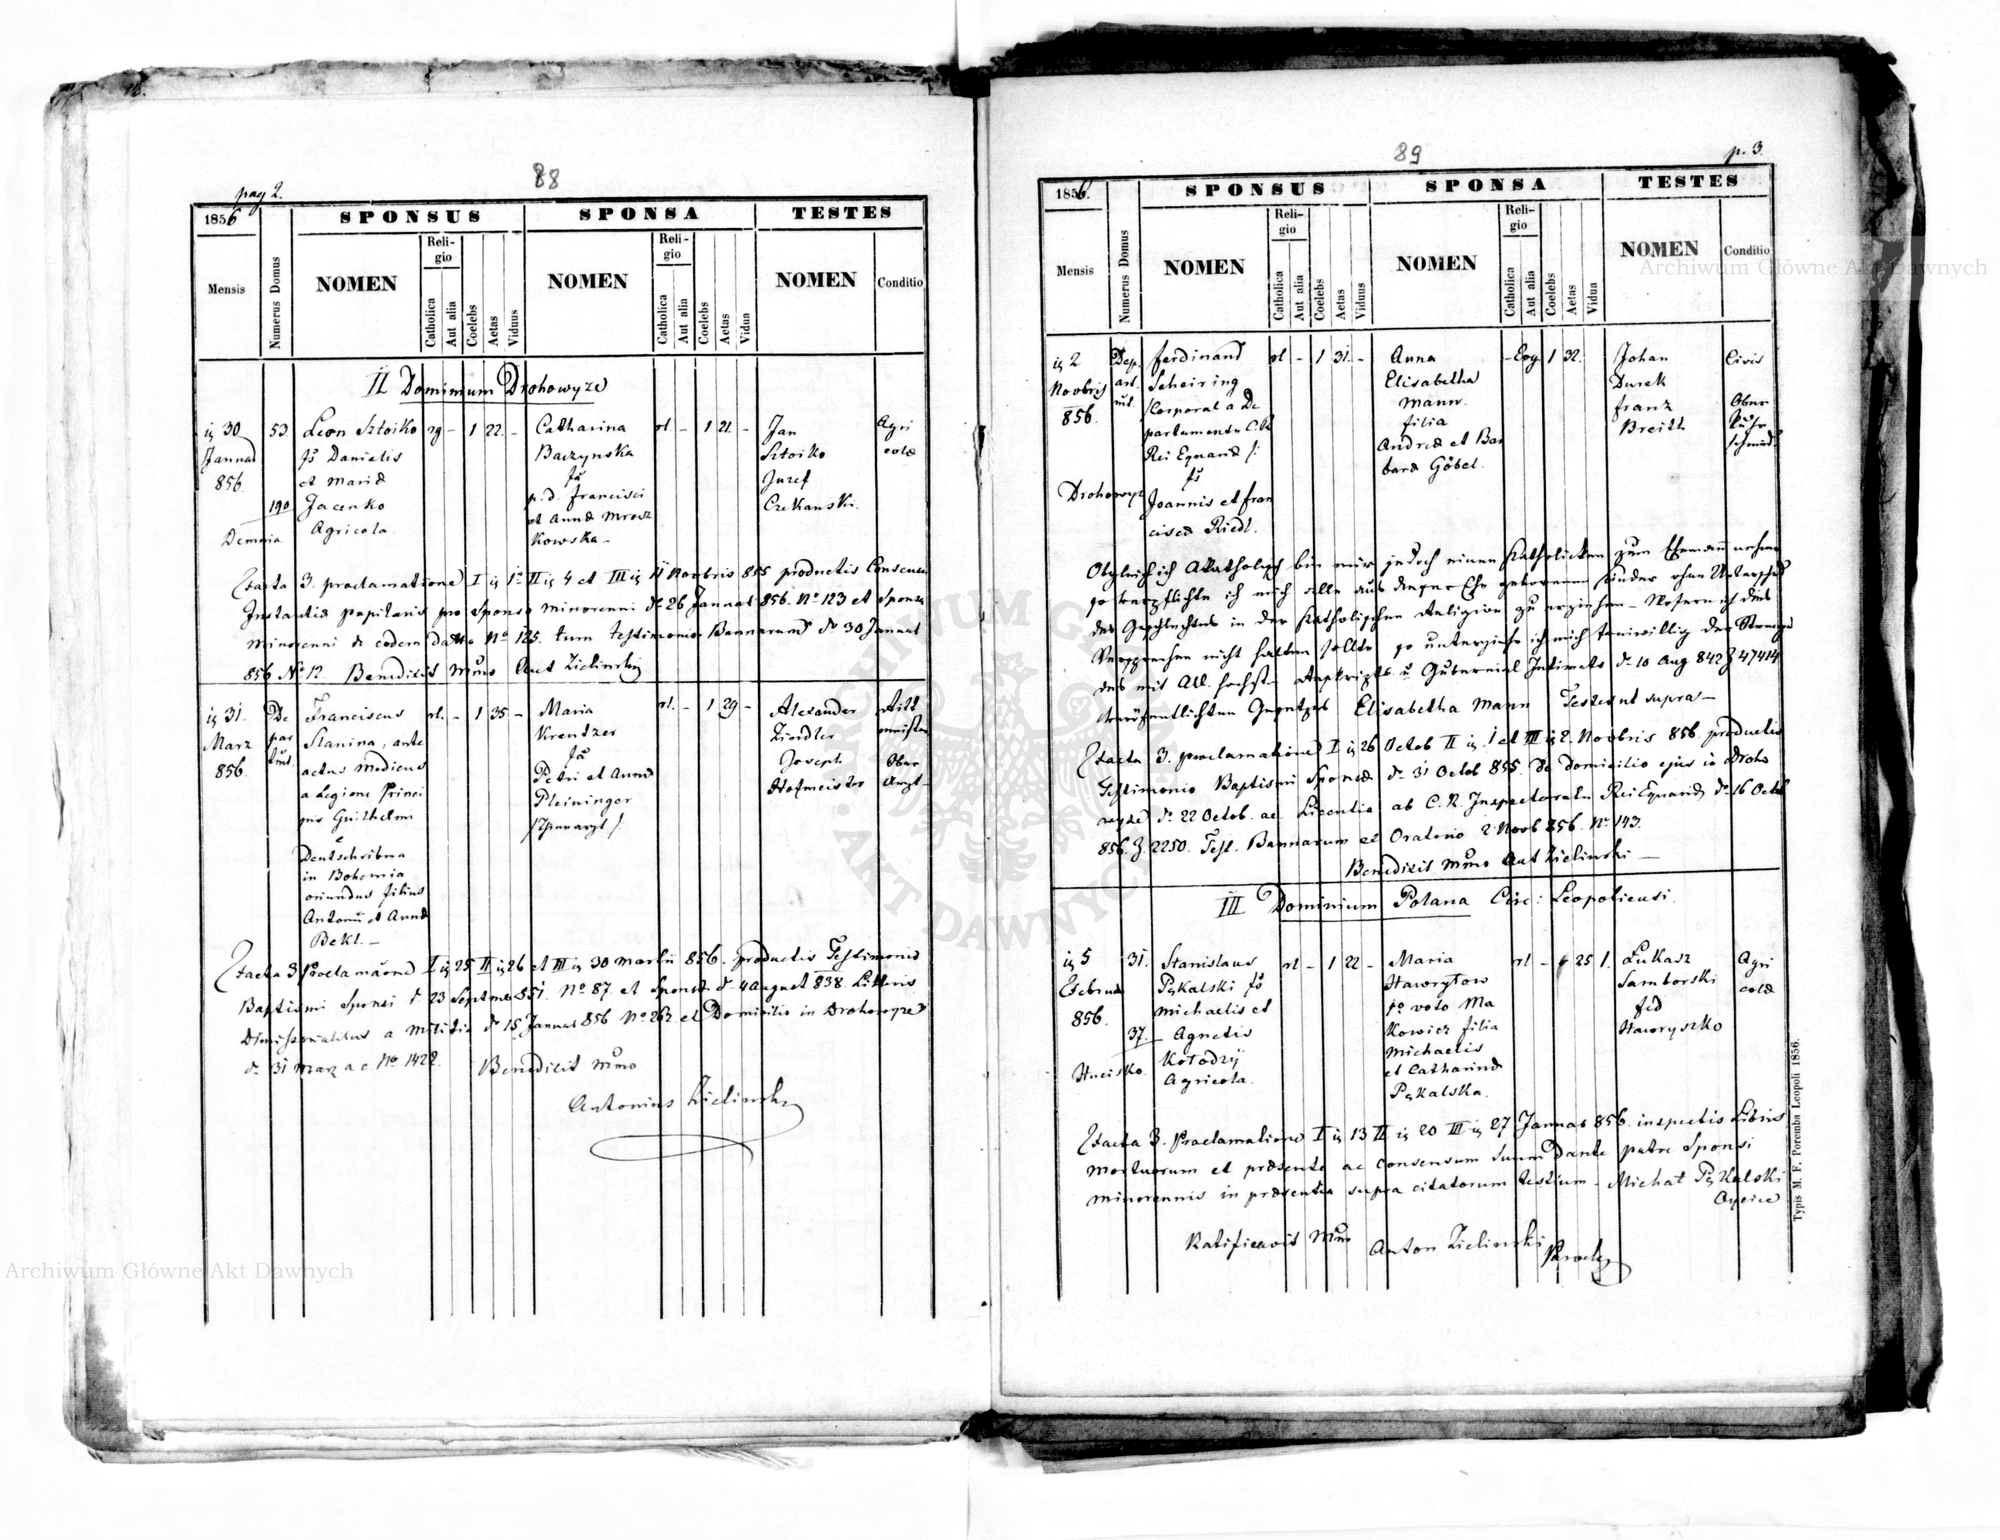 88
pag 2.
1856
SPONSUS
SPONSA
TESTES
Mensis
Numerus Domus
NOMEN
Religio
Catholica
Aut alia
Coelebs
Aetas
Viduus
NOMEN
Religio
Catholica
Aut alia
Coelebs
Aetas
Vidua
NOMEN
Conditio
II Dominium Drohowyze
30 53 Leon Sztoiko rg - 1 22 - Catharina rl - 1 21 - Jan Agri
Januar fs Danielis Baczynska Sztoiko colæ
856. et Mariæ fa Juzef
190 Jacenko p. d. Francisci Czekanski.
Demnia Agricola. et Annæ Mrosz
kowska -
facta 3. proclamatione I 1a II 4 et III 11 Novbris 855 productis Consensu
Instantiæ pupilaris pro sponso minorenni do 26 Januar 856. No 123 et Sponsa
minorenni de eodem Dato No 125. tum Testimonio Bannarum do 30 Januar
856 No 12. Benedixit Ant Zielinski
31. De Franciscus rl. - 1 35 - Maria rl. - 1 29 - Alexander Ritt
Marz par Slanina, ante Kreutzer Zindler meister
856. tmt. actus Medicus fa Joseph Ober
a Legione Princi Petri et Annæ Hofmeister Arzt -
pis Guilhelmi Pleininger
Deutschribna
in Bohemia
oriundus filius
Antonii et Annæ
Bekl. -
facta 3 Proclamaone I 25 II 26 et III 30 Martii 856. productis Testimonio
Baptismi Sponsi d 23 Septmr 851 No 87. et Sponsæ d 4 August 838. Litteris
Dimissorialibus a Militia do 15 Januar 856 No 262 et Domicilio in Drohowyze
do 31 Marz a c. No 1422. Benedixit
Antonius Zielinski
89
p. 3.
1856.
SPONSUS
SPONSA
TESTES
Mensis
Numerus Domus
NOMEN
Religio
Catholica
Aut alia
Coelebs
Aetas
Viduus
NOMEN
Religio
Catholica
Aut alia
Coelebs
Aetas
Vidua
NOMEN
Conditio
2 Dep. Ferdinand rl - 1 31. - Anna - Evg 1 32. Johan Civis
Novbris art. Scheiring Elisabetha Durek
856. mt. Corporal a De Mann. Franz Ober
partamento C. R filia Breith
Rei Equariæ Andreæ et Bar schmied
fs baræ Göbel.
Drohowyz Joannis et Fran
ciscæ Riedl.
Obgleich ich Akatholisch bin mir jedoch einen Katholicken zum Ehemann nehme
so verpflichte ich mich alle aus dieser Ehe geborenen Kinder ohne Unterschied
des Geschlechtes in der Katholischen Religion zu erziehen - Wofern ich dies
Versprechen nicht halten sollte so unterziehe ich mich freiwillig der Strenge
des mit All. hochst. Reskripts u Gubernial Intimats do 10 Aug 842 Z 47414
veröffentlichten Gesetzes Elisabetha Mann Testes ut supra -
facta 3. proclamatione I 26 Octob II 1 et III 2. Novbris 856. productis
Testimonio Baptismi Sponsæ do 31 Octob 855. de domicilio ejus in Droho
wyze do 22 Octob. ac Licentia ab C. R. Inspectoratu Rei Equariæ do 16 Octob
856. Z. 2250. Test. Bannarum et Oratorio 2 Novb 856. No 143.
Benedixit Ant Zielinski -
III Dominium Polana Circ: Leopoliensi.
5 31. Stanislaus rl - 1 22 - Maria rl - 25 1. Łukasz Agri
Februar Pękalski fs Hawryłow Samborski colæ
856. Michaelis et 1o voto Ma fed
37. Agnetis kowicz filia Hawryszko
Hucisko. Kołodzij Michaelis
Agricola. et Catharinæ
Pękalska.
facta 3. Proclamatione I 13 II 20 III 27 Januar 856. inspectis Libris
Mortuorum et præsente ac consensum suum Dante patre Sponsi
minorennis in præsentia supra citatorum testium - Michał Pękalski
Oyciec
Ratificavit Anton Zielinski
Typis M. F. Poremba Leopoli 1856.
Archiwum Główne Akt Dawnych
ARCHIWUM GŁÓWNE AKT DAWNYCH
Archiwum Główne Akt Dawnych